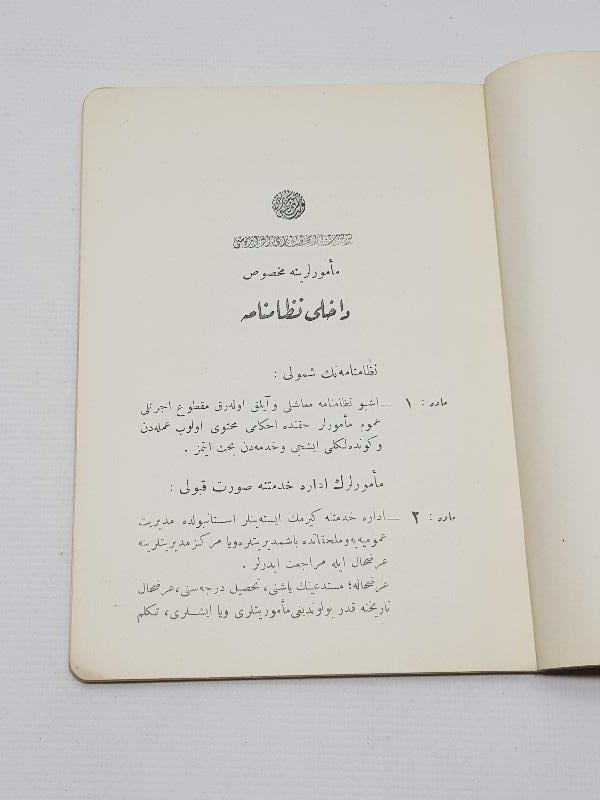 مأمورلرينه مخصوص
داخلى نظامنامه
نظامنامه‌نك شمولى :
ماده : ١ — اشبو نظامنامه معاشلى و آيلق اوله‌رق مقطوع اجرتلى
عموم مأمورلر حقنده احكامى محتوى اولوب عمله‌دن
و كونده‌لكلى ايشجى و خدمه‌دن بحث ايتمز .
مأمورلرك اداره خدمتنه صورت قبولى :
ماده : ٢ — اداره خدمتنه كيرمك ايسته‌ينلر استانبولده مديريت
عموميه‌يه و ملحقاتده باشمديريتلره ويا مركز مديريتلرينه
عرضحال ايله مراجعت ايدرلر .
عرضحاله؛ مستدعينك ياشنى، تحصيل درجه‌سنى، عرضحال
تاريخنه قدر بولونديغى مأموريتلرى ويا ايشلرى، تكلم